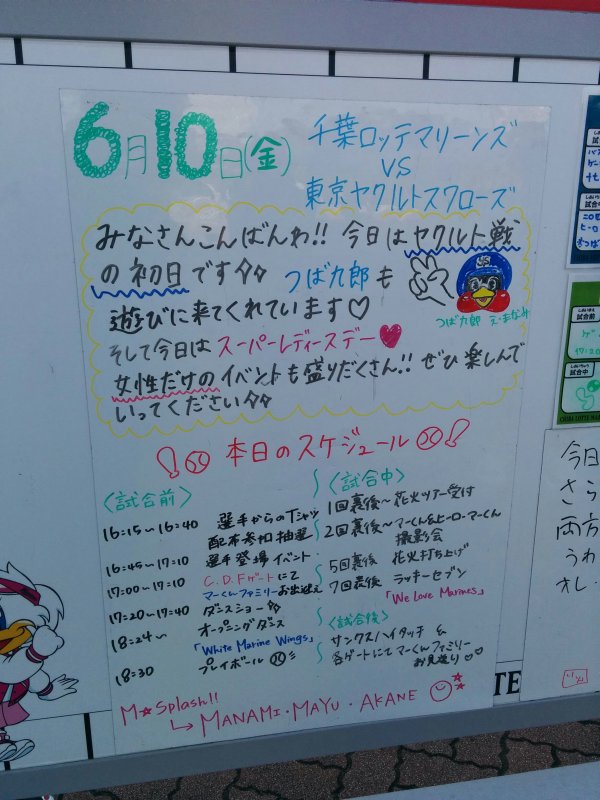 6月10日(金)
千葉ロッテマリーンズ
VS
東京ヤクルトスワローズ
みなさんこんばんわ!! 今日はヤクルト戦
の初日です
つば九郎も
遊びに来てくれています♡
つば九郎 え・まなみ
そして今日はスーパーレディースデー♥
女性だけのイベントも盛りだくさん!! ぜひ楽しんで
いってください
本日のスケジュール
<試合前>
16:15~16:40 選手からのTシャツ
配布参加抽選
16:45~17:10 選手登場イベント
17:00~17:10 C.D.Fゲートにて
マーくんファミリーお出迎え
17:20~17:40 ダンスショー
18:24~ オープニングダンス
「White Marine Wings」
18:30 プレイボール
<試合中>
1回裏後~ 花火ツアー受付
2回裏後~ マーくん&ヒーローマーくん
撮影会
5回裏後 花火打ち上げ
7回裏後 ラッキーセブン
「We Love Marines」
<試合後>
サンクスハイタッチ &
各ゲートにてマーくんファミリー
お見送り♡♡
M☆Splash!!
→ MANAMI・MAYU・AKANE
今日
さら
両方
うわ
オレ
TE
試合前
17:20
試合中
CHIBA LOTTE MAR